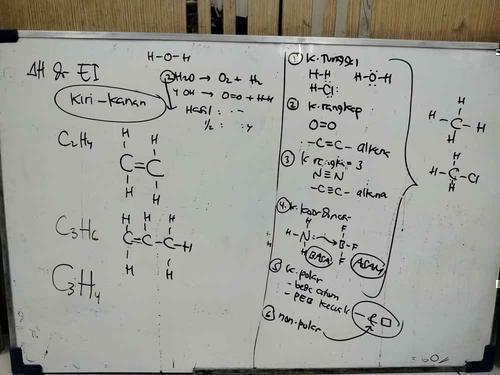 ΔH & EI
Kiri-kanan
H-O-H
2H₂O → O₂ + H₂
4 OH → O=O + H-H
Hasil : -
1/2
C₂H₄
H H
C=C
H H
C₃H₆
H H H
C=C-C-H
H H
C₃H₄
① K. Tunggal
H-H H-O-H
H-Cl
② K. rangkap
O=O
-C=C- alkena
③ K rangkap = 3
N≡N
-C≡C- alkuna
④ K. Koordinasi
H F
H-N: → B-F
H F
BASA ASAM
⑤ K. polar
- beda atom
- PEB
⑥ non-polar
H
H-C-H
H
H
H-C-Cl
H